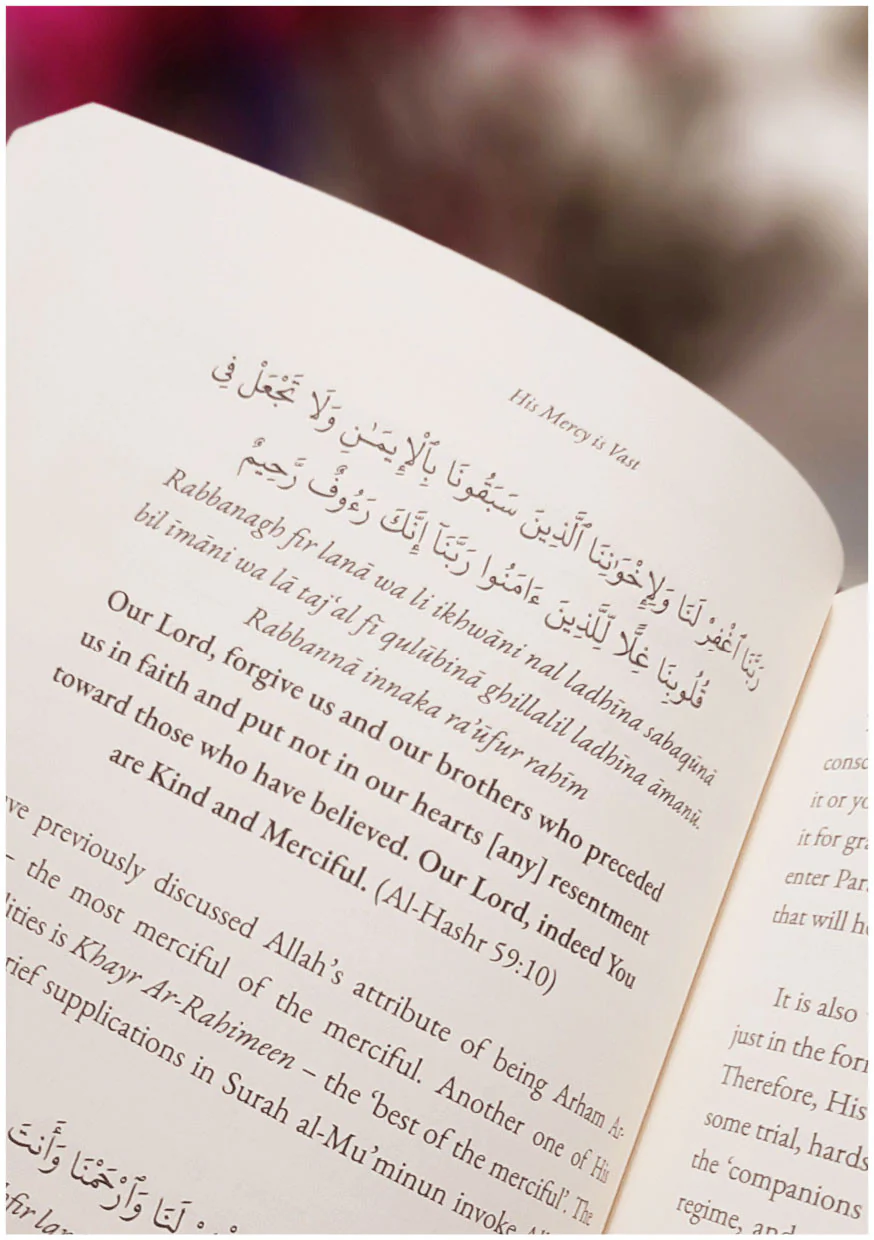 His Mercy is Vast
رَبَّنَا ٱغْفِرْ لَنَا وَلِإِخْوَٰنِنَا ٱلَّذِينَ سَبَقُونَا بِٱلْإِيمَـٰنِ وَلَا تَجْعَلْ فِى
قُلُوبِنَا غِلًّا لِّلَّذِينَ ءَامَنُوا رَبَّنَآ إِنَّكَ رَءُوفٌ رَّحِيمٌ
Rabbanagh fir lanā wa li ikhwāni nal ladhīna sabaqūnā
bil īmāni wa lā taj‘al fī qulūbinā ghillalil ladhīna āmanū.
Rabbannā innaka ra’ūfur rahīm
Our Lord, forgive us and our brothers who preceded
us in faith and put not in our hearts [any] resentment
toward those who have believed. Our Lord, indeed You
are Kind and Merciful. (Al-Hashr 59:10)
previously discussed Allah’s attribute of being Arham Ar-
– the most merciful of the merciful. Another one of His
is Khayr Ar-Rahimeen – the ‘best of the merciful’. The
supplications in Surah al-Mu’minun invoke
لَنَا وَٱرْحَمْنَا وَأَنتَ
it or
it for
enter
that will
It is also
just in the
Therefore, His
some trial,
the ‘companions
regime, and